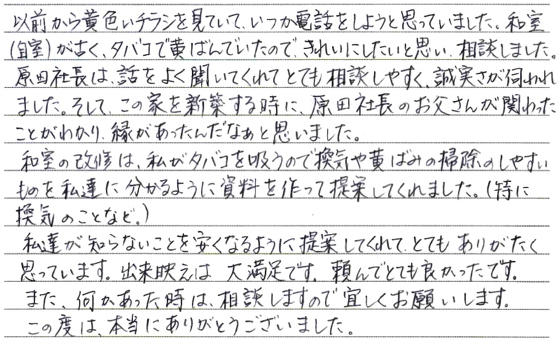 以前から黄色いチラシを見ていて、いつか電話をしようと思っていました。和室
(自室)が古く、タバコで黄ばんでいたので、きれいにしたいと思い、相談しました。
原田社長は、話をよく聞いてくれてとても相談しやすく、誠実さが伺われ
ました。そして、この家を新築する時に、原田社長のお父さんが関わった
ことがわかり、縁があったんだなぁと思いました。
和室の改修は、私がタバコを吸うので換気や黄ばみの掃除のしやすい
ものを私達に分かるように資料を作って提案してくれました。(特に
換気のことなど。)
私達が知らないことを安くなるように提案してくれて、とてもありがたく
思っています。出来映えは大満足です。頼んでとても良かったです。
また、何かあった時は、相談しますので宜しくお願いします。
この度は、本当にありがとうございました。